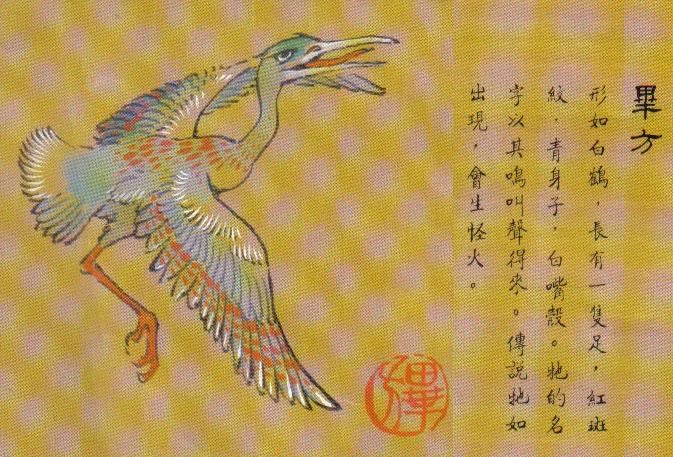 畢方
形如白鶴，長有一隻足，紅斑
紋，青身子，白嘴殼。牠的名
字以其鳴叫聲得來。傳說牠如
出現，會生怪火。